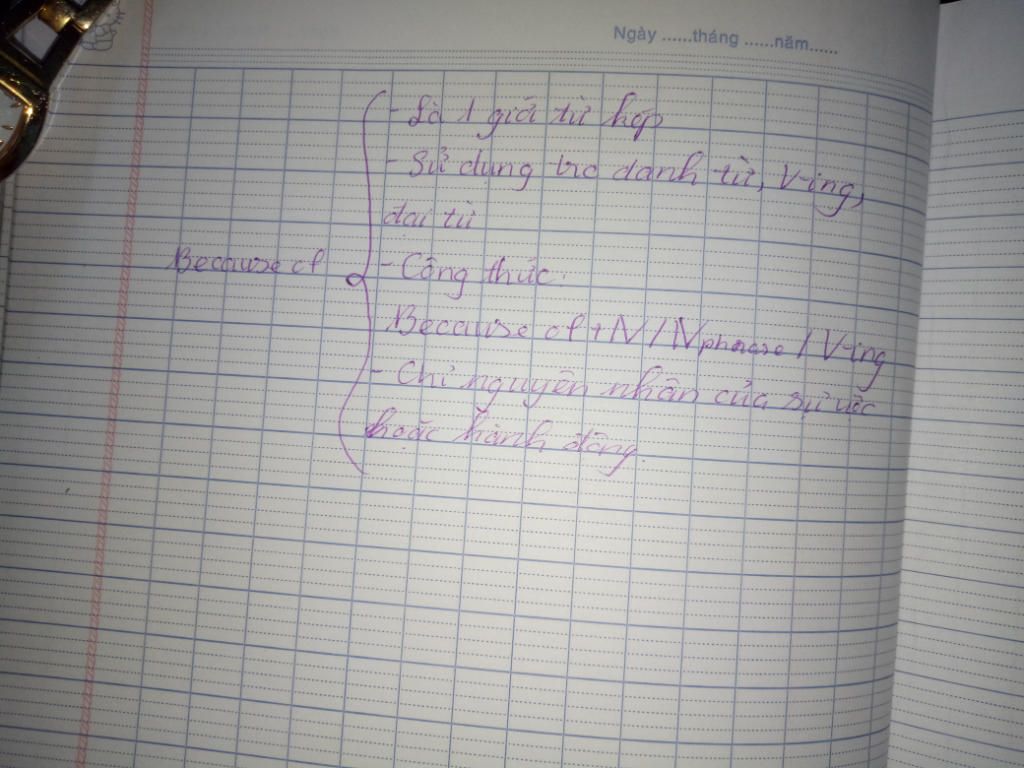 Ngày ......tháng ......năm......
- Là 1 giới từ hợp
- Sử dụng trc danh từ, V-ing,
đại từ
Because of
- Công thức:
Because of + N / Nphrase / V-ing
- Chỉ nguyên nhân của sự vc
hoặc hành động.